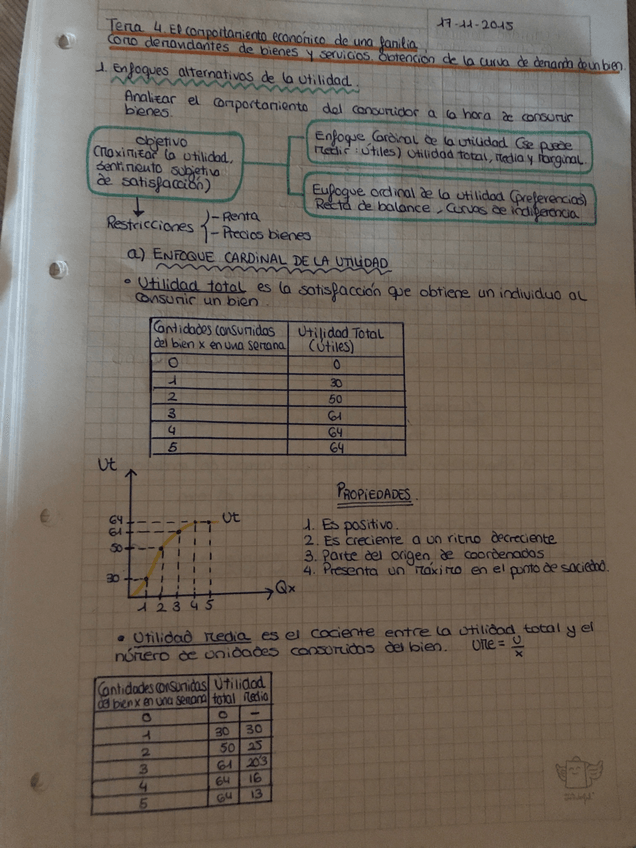 17-11-2015
Tema 4 El comportamiento económico de una familia
como demandantes de bienes y servicios, obtención de la curva de demanda de un bien.
1. Enfoques alternativos de la utilidad.
Analizar el comportamiento del consumidor a la hora de consumir
bienes.
Objetivo
(maximizar la utilidad,
sentimiento subjetivo
de satisfacción)
Enfoque Cardinal de la utilidad (se puede
medir: útiles) utilidad total, media y marginal.
Enfoque ordinal de la utilidad (preferencias)
Recta de balance, Curvas de indiferencia.
Restricciones
- Renta
- Precios bienes
a) ENFOQUE CARDINAL DE LA UTILIDAD
• Utilidad total es la satisfacción que obtiene un individuo al
consumir un bien.
Cantidades consumidas Utilidad Total
del bien x en una semana (útiles)
0 0
1 30
2 50
3 61
4 64
5 64
Ut
64
61
50
30
Ut
1 2 3 4 5
Qx
PROPIEDADES.
1. Es positivo.
2. Es creciente a un ritmo decreciente
3. Parte del origen de coordenadas
4. Presenta un máximo en el punto de saciedad.
• Utilidad media es el cociente entre la utilidad total y el
número de unidades consumidas del bien. Ume = U/x
Cantidades consumidas Utilidad
del bien x en una semana total media
0 0 –
1 30 30
2 50 25
3 61 20'3
4 64 16
5 64 13